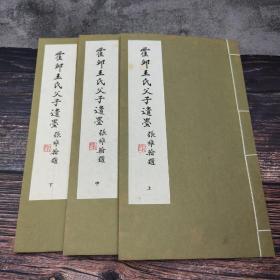 霍邱王氏父子遺墨
張雄翰題
下
霍邱王氏父子遺墨
張雄翰題
中
霍邱王氏父子遺墨
張雄翰題
上